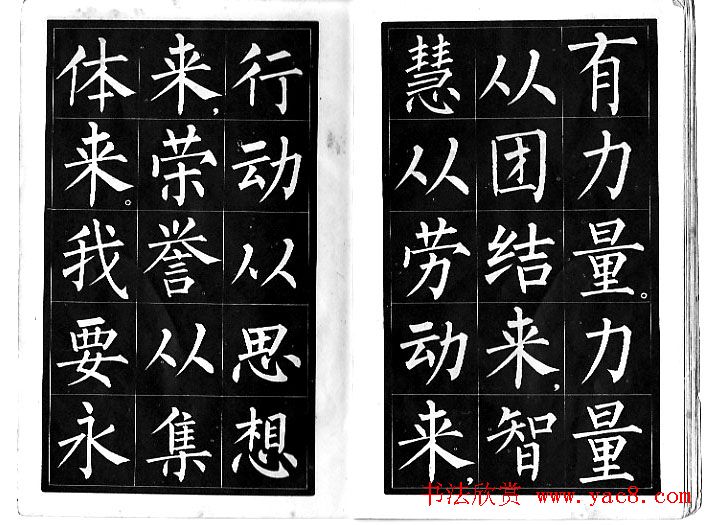 有力量。力量
从团结来,智
慧从劳动来,
行动从思想
来,荣誉从集
体来。我要永
书法欣赏 www.yac8.com